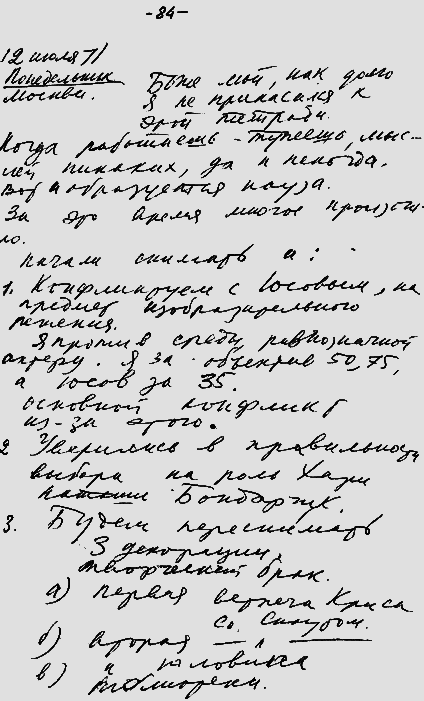 -84-
12 июля 71
Понедельник
Москва.
Боже мой, как долго
я не прикасался к
этой тетради.
Когда работаешь - тупеешь, мыс-
лей никаких, да и некогда.
Вот и образуется пауза.
За это время многое произош-
ло.
Начали снимать и:
1. Конфликтуем с Юсовым, на
предмет изобразительного
решения.
Я против среды равнозначной
актеру. Я за объектив 50, 75,
а Юсов за 35.
Основной конфликт
из-за этого.
2 Уверились в правильности
выбора на роль Хари
Бондарчук.
3. Будем переснимать
3 декорации,
творческий брак.
а) первая встреча Криса
со Снаутом.
б) вторая — " —
в) и половина
библиотеки.